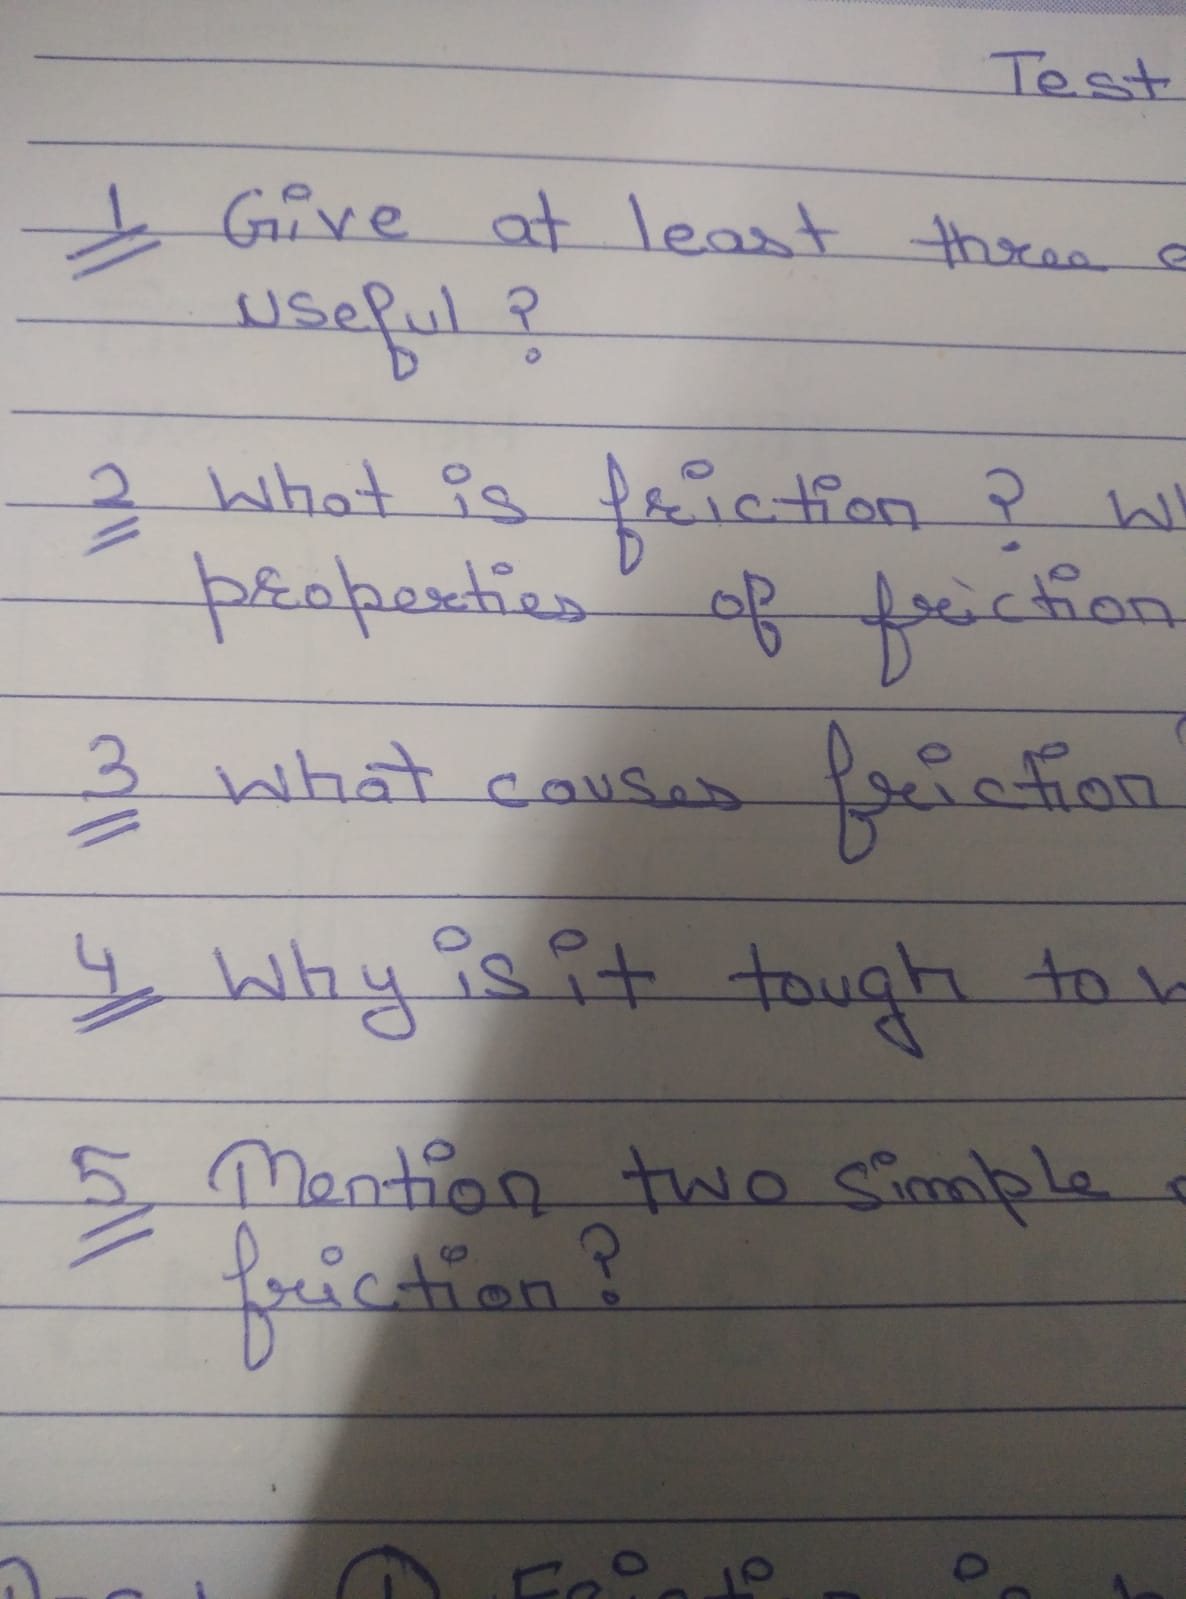 Test
1 Give at least three
useful?
2 What is friction ?
properties of friction
3 What causes friction
4 Why is it tough to
5 Mention two simple
friction?